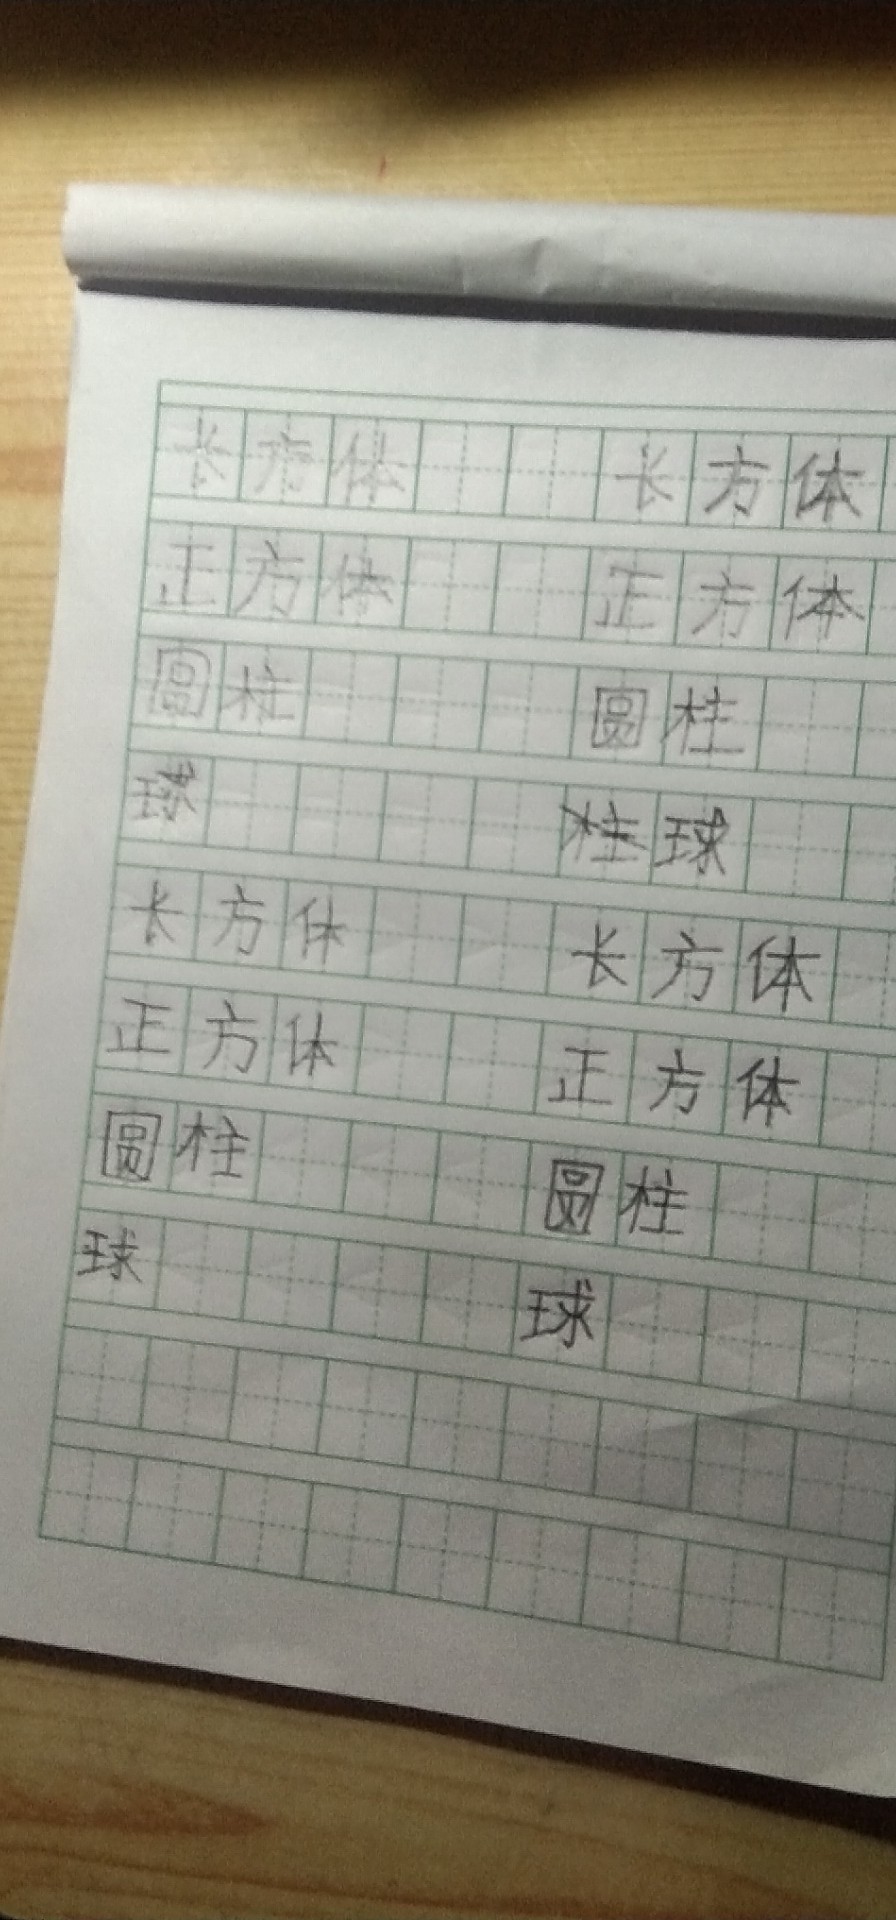 长方体 长方体
正方体 正方体
圆柱 圆柱
球 柱球
长方体 长方体
正方体 正方体
圆柱 圆柱
球 球